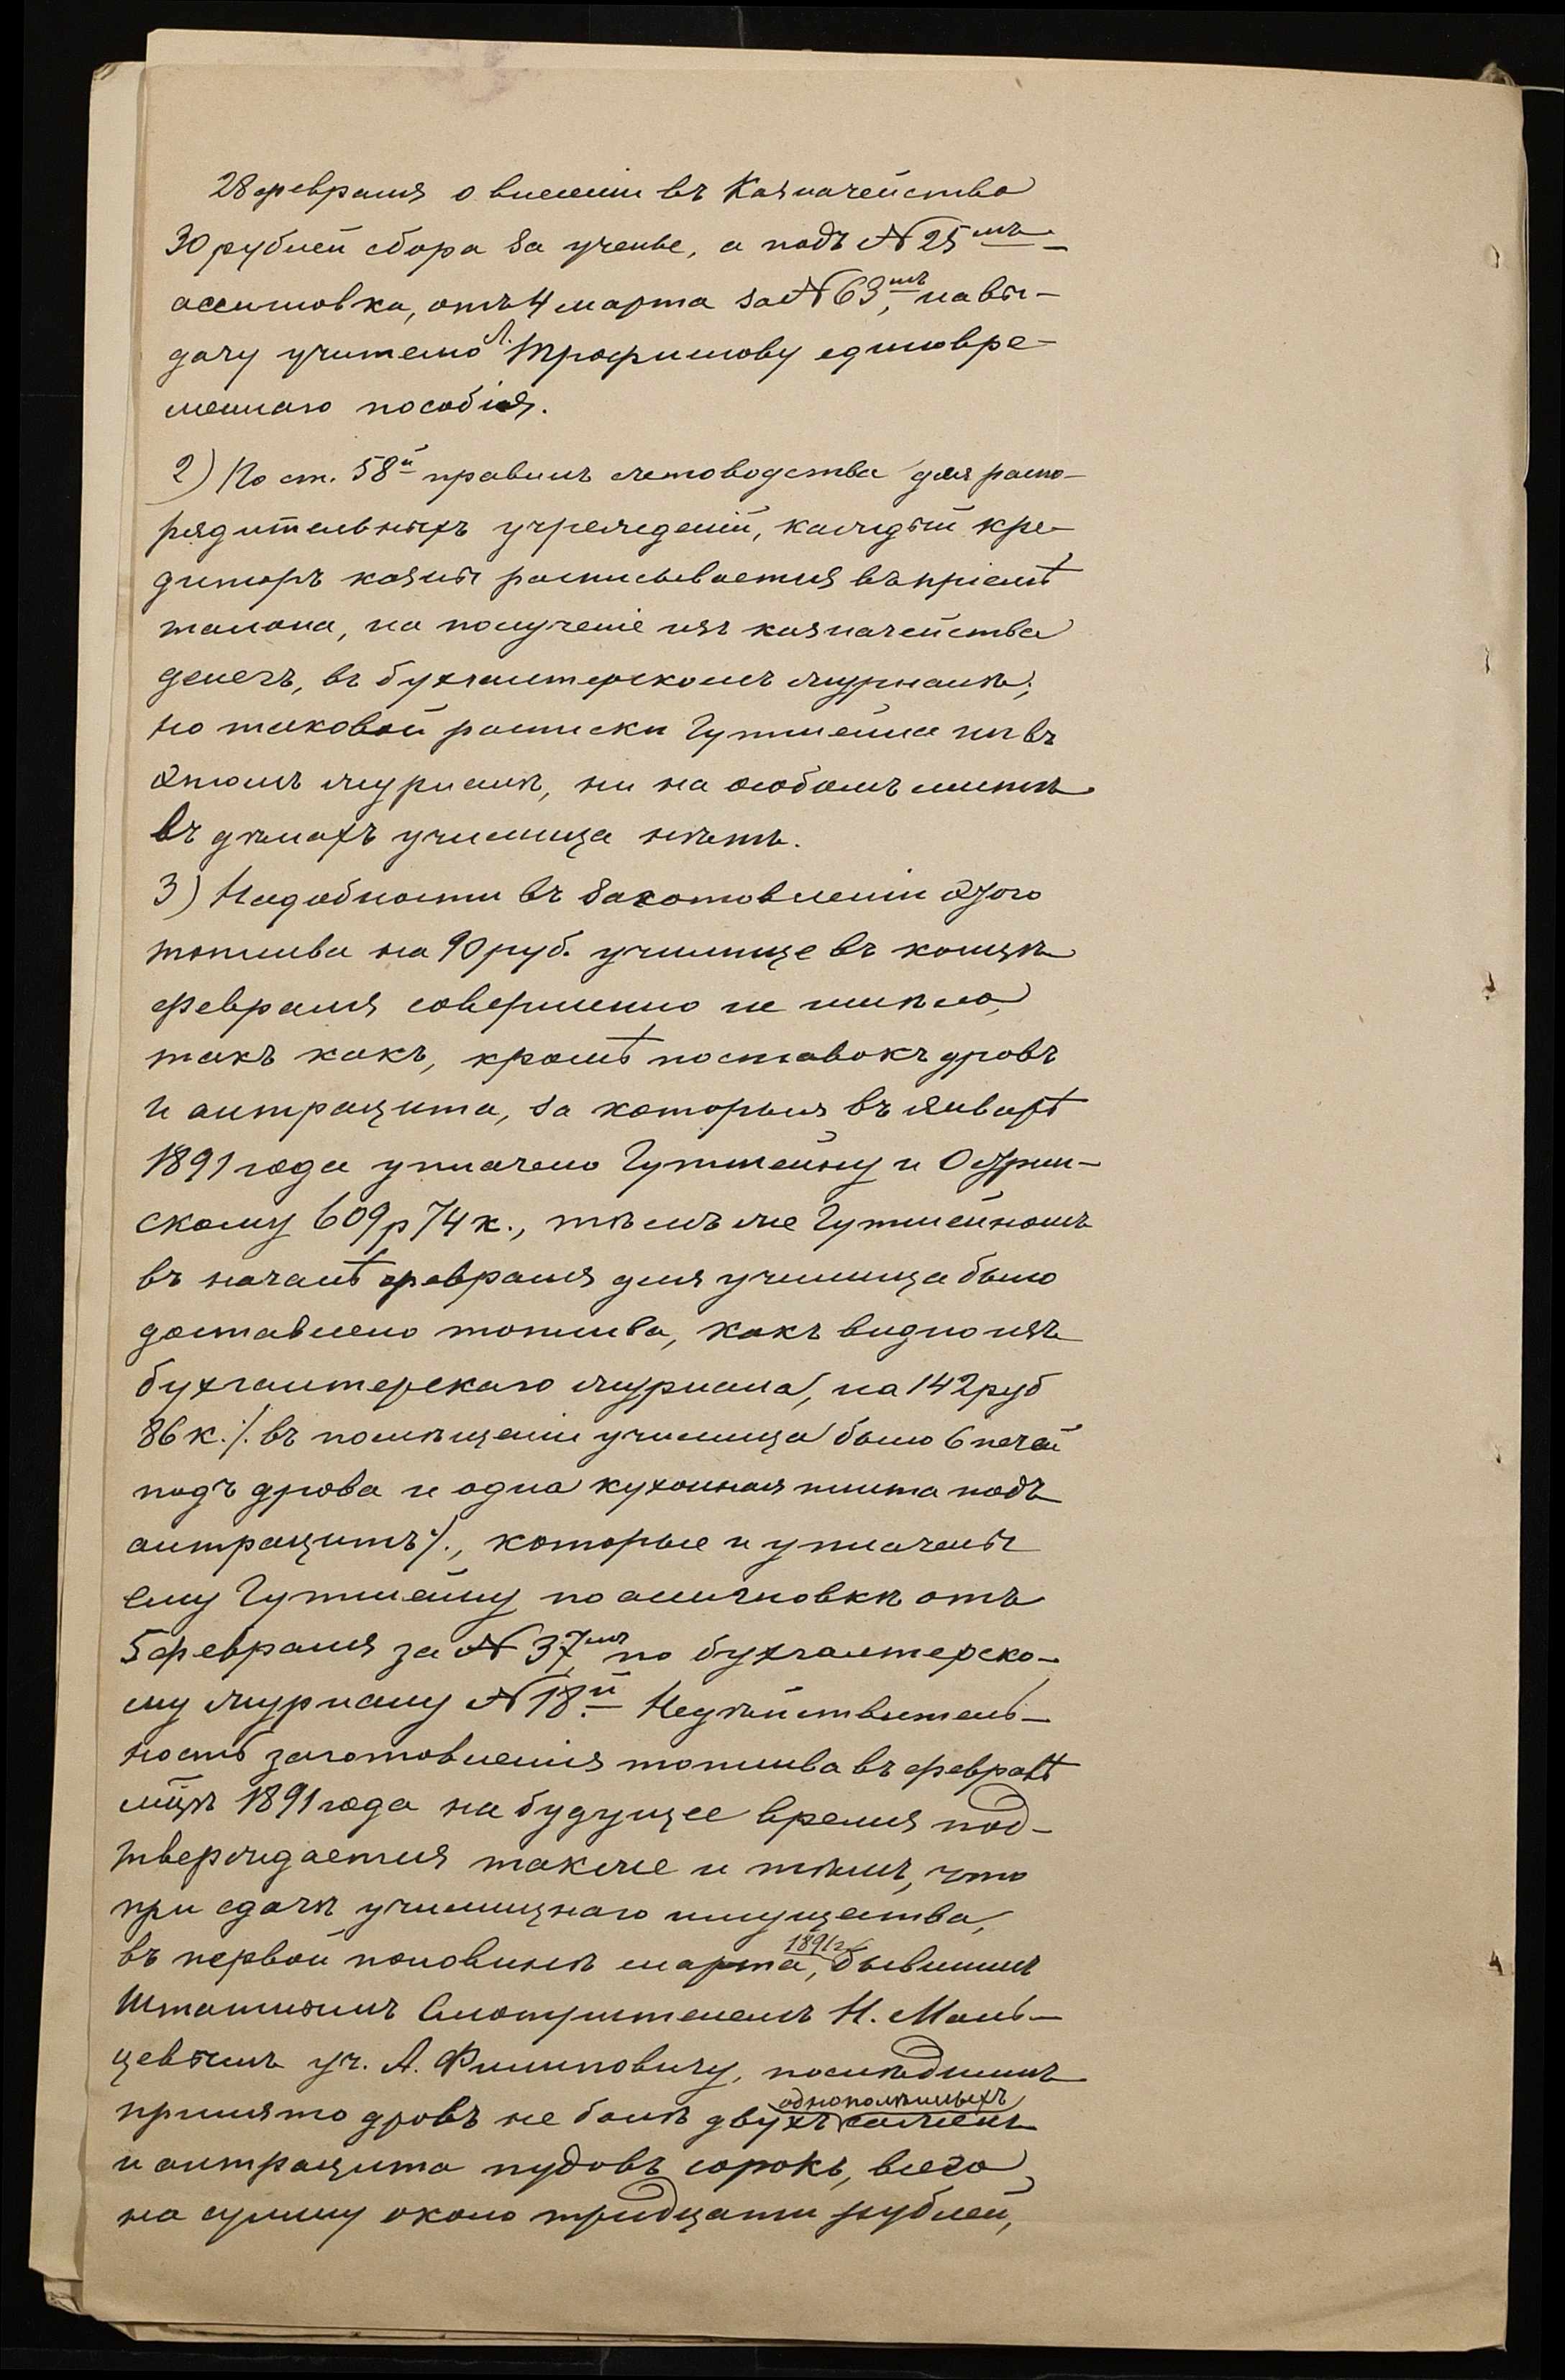 28 февраля о внесеніи въ Казначейство
30 рублей сбора за ученье, а подъ № 25мъ
ассигновка, отъ 4 марта за № 63мъ, на вы-
дачу учителю Л. Трофимову единовре-
меннаго пособія.
2) По ст. 58й правилъ счетоводства для распо-
рядительныхъ учрежденій, каждый кре-
диторъ казны расписывается въ пріемѣ
талона, на полученіе изъ казначейства
денегъ, въ бухгалтерскомъ журналѣ;
но таковой расписки Гутшейна ни въ
этомъ журналѣ, ни на особомъ листѣ
въ дѣлахъ училища нѣтъ.
3) Надобности въ заготовленіи этого
топлива на 90 руб. училище въ концѣ
февраля совершенно не имѣло,
такъ какъ, кромѣ поставокъ дровъ
и антрацита, за которыя въ январѣ
1891 года уплачено Гутшейну и
скому 609 р 74 к., тѣмъ же Гутшейномъ
въ началѣ февраля для училища было
доставлено топлива, какъ видно изъ
бухгалтерскаго журнала, на 142 руб
86 к. /. въ помѣщеніи училища было 6 печей
подъ дрова и одна кухонная плита подъ
антрацитъ /., которые и уплачены
ему Гутшейну по ассигновкѣ отъ
5 февраля за № 37мъ, по бухгалтерско-
му журналу № 18й. Недѣйствитель-
ность заготовленія топлива въ февралѣ
мцѣ 1891 года на будущее время под-
тверждается также и тѣмъ, что
при сдачѣ училищнаго имущества,
въ первой половинѣ марта 1891 г, бывшимъ
Штатнымъ Смотрителемъ Н. Маль-
цевымъ уч. А. Филиповичу, послѣднимъ
принято дровъ не болѣ двухъ однополѣнныхъ сажень
и антрацита пудовъ сорокъ, всего
на сумму около тридцати рублей,